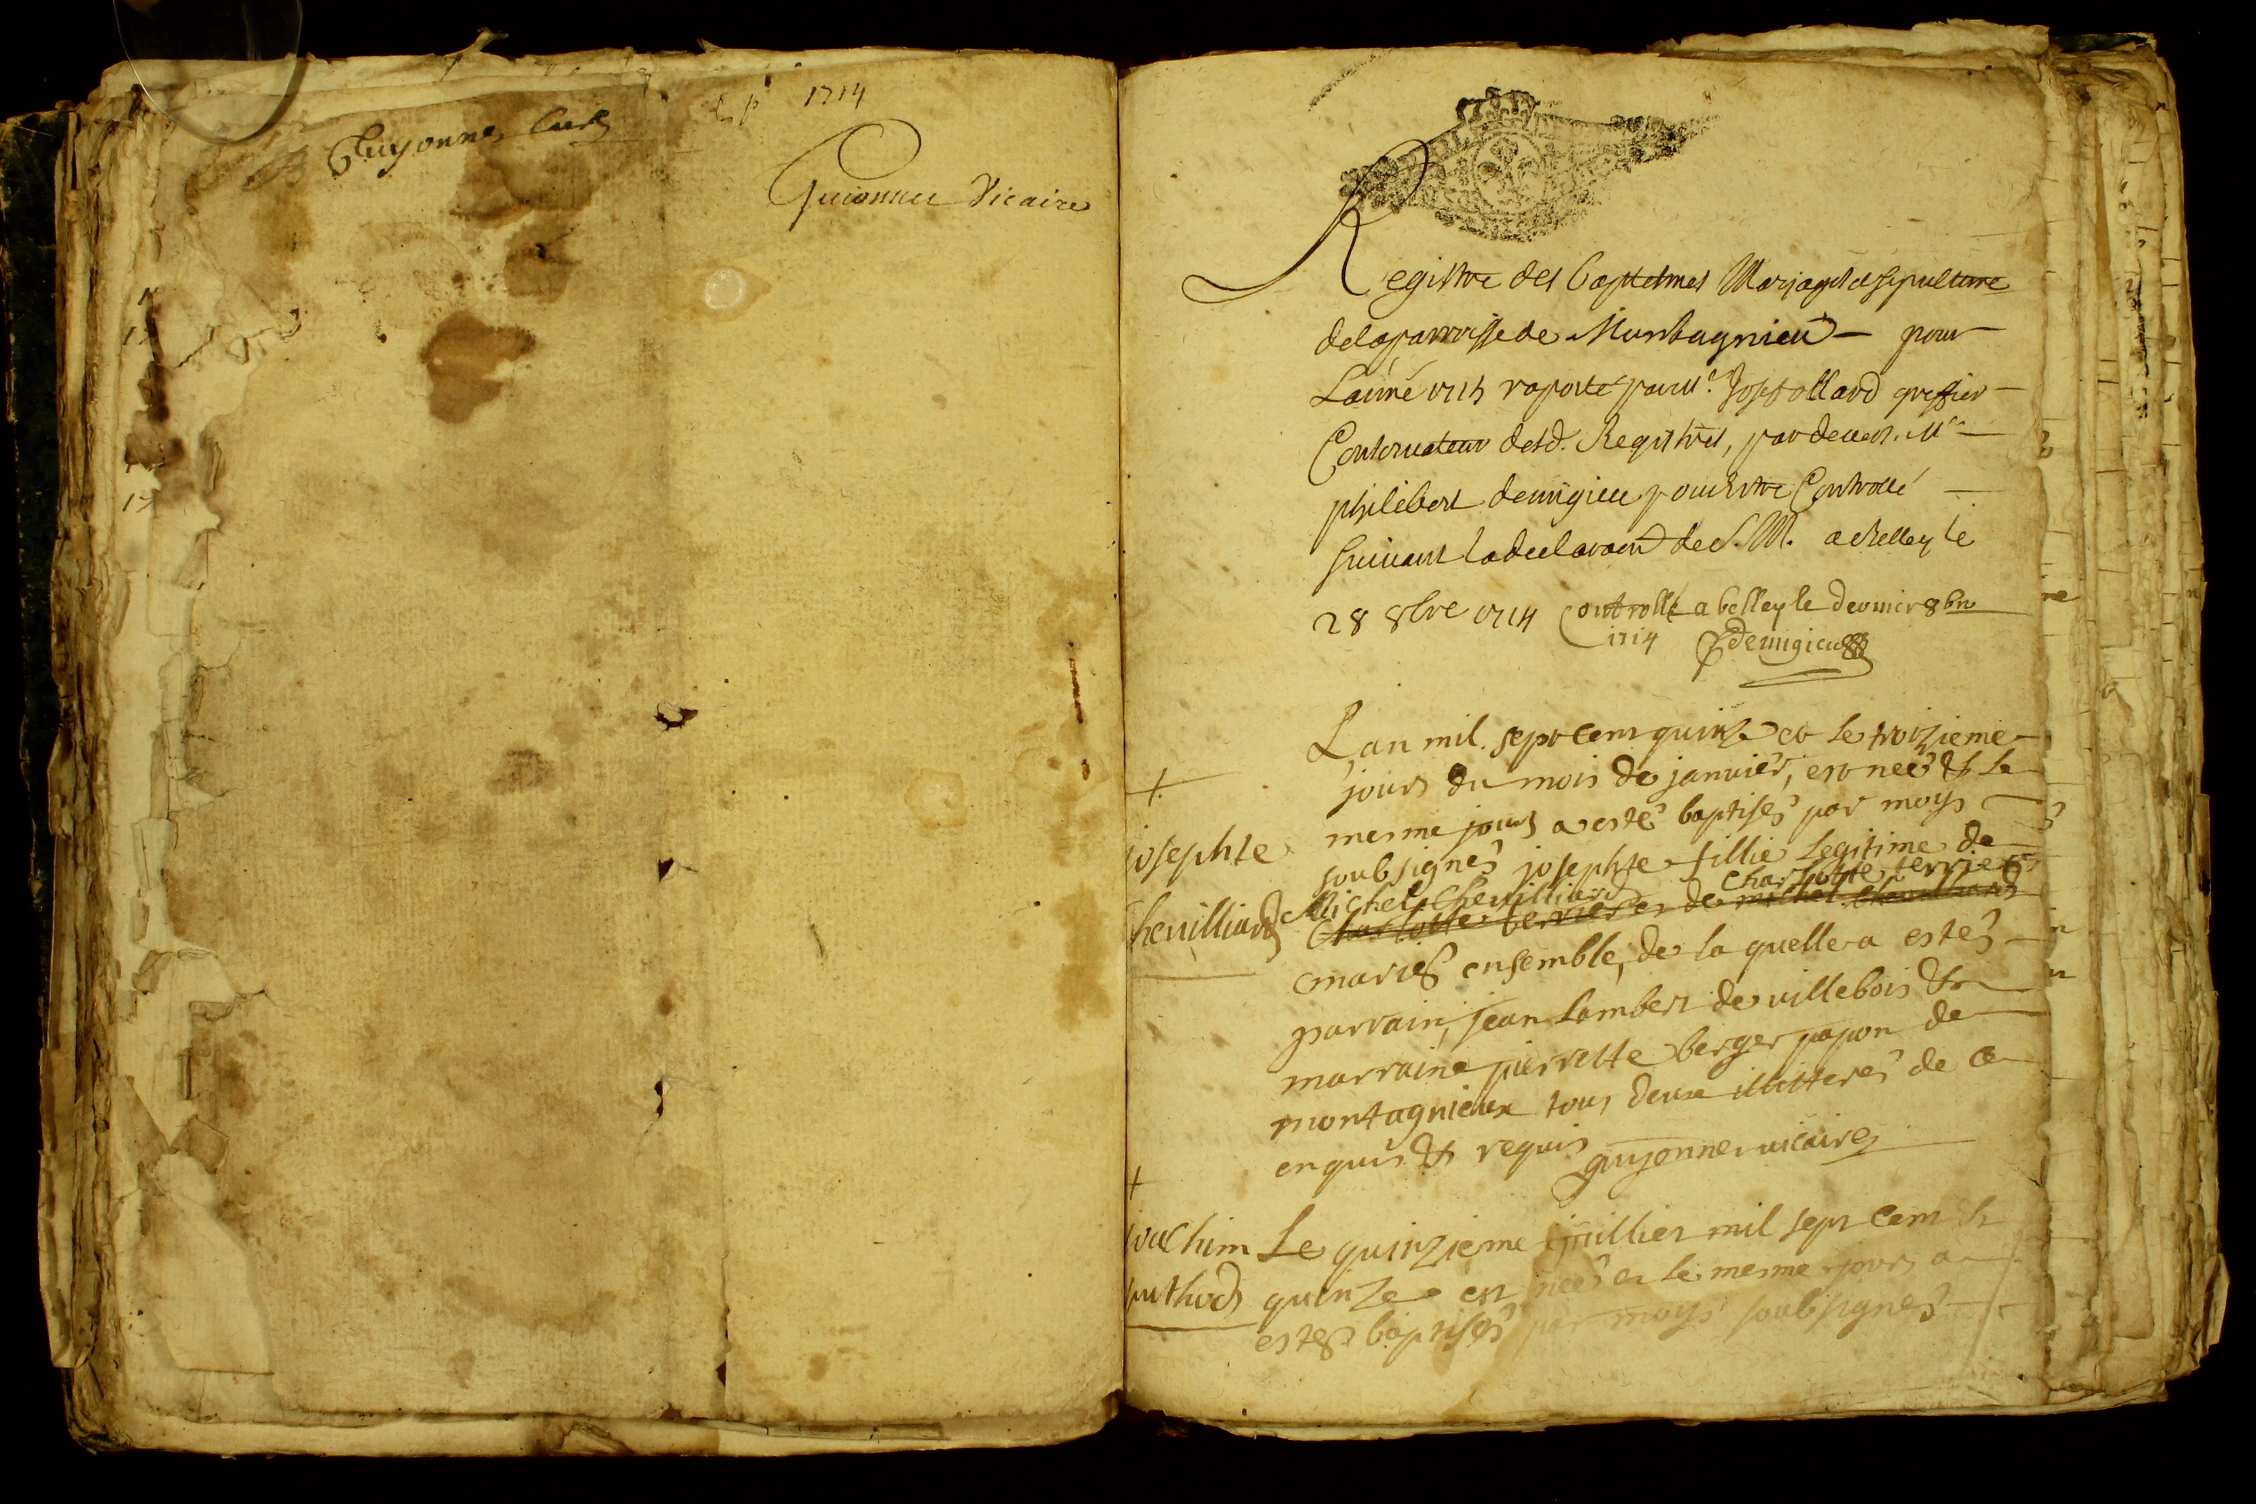 1714
Guyonne, Curé
Guionnee Vicaire
Registre des baptesmes Mariages et sepulture
de la parroisse de Montagnieu pour
L'année 1715 raporté par Mr. Jos. Follard greffier
Conservateur desd. Registres, par devers Mr
philibert demigieu pour estre Controllé
suivant la declaraon de S. M. a Belley le
28 8bre 1714 Controllé a belley le dernier 8bre
1714 Demigieu
L'an mil sept cent quinze et le troizieme
jours du mois de janvier, est neé & le
mesme jours a esté baptiseé par moys
josephte
soubsigneé josephte fillie Legitime de
Charlotte terrier
chevilliard
Michel Chevilliard
Charlotte terrier et de michel chevilliard
marieé ensemble, de la quelle a esteé
parrain, jean Lambert de villebois &
marraine pierrette berger papon de
montagnieux tous deux illettereé de ce
enquis & requis guyonnet vicaire
joachim Le quinzieme juillier mil sept cent &
juthod quinze est neé et le mesme jours a
esteé baptiseé par moys soubsigneé